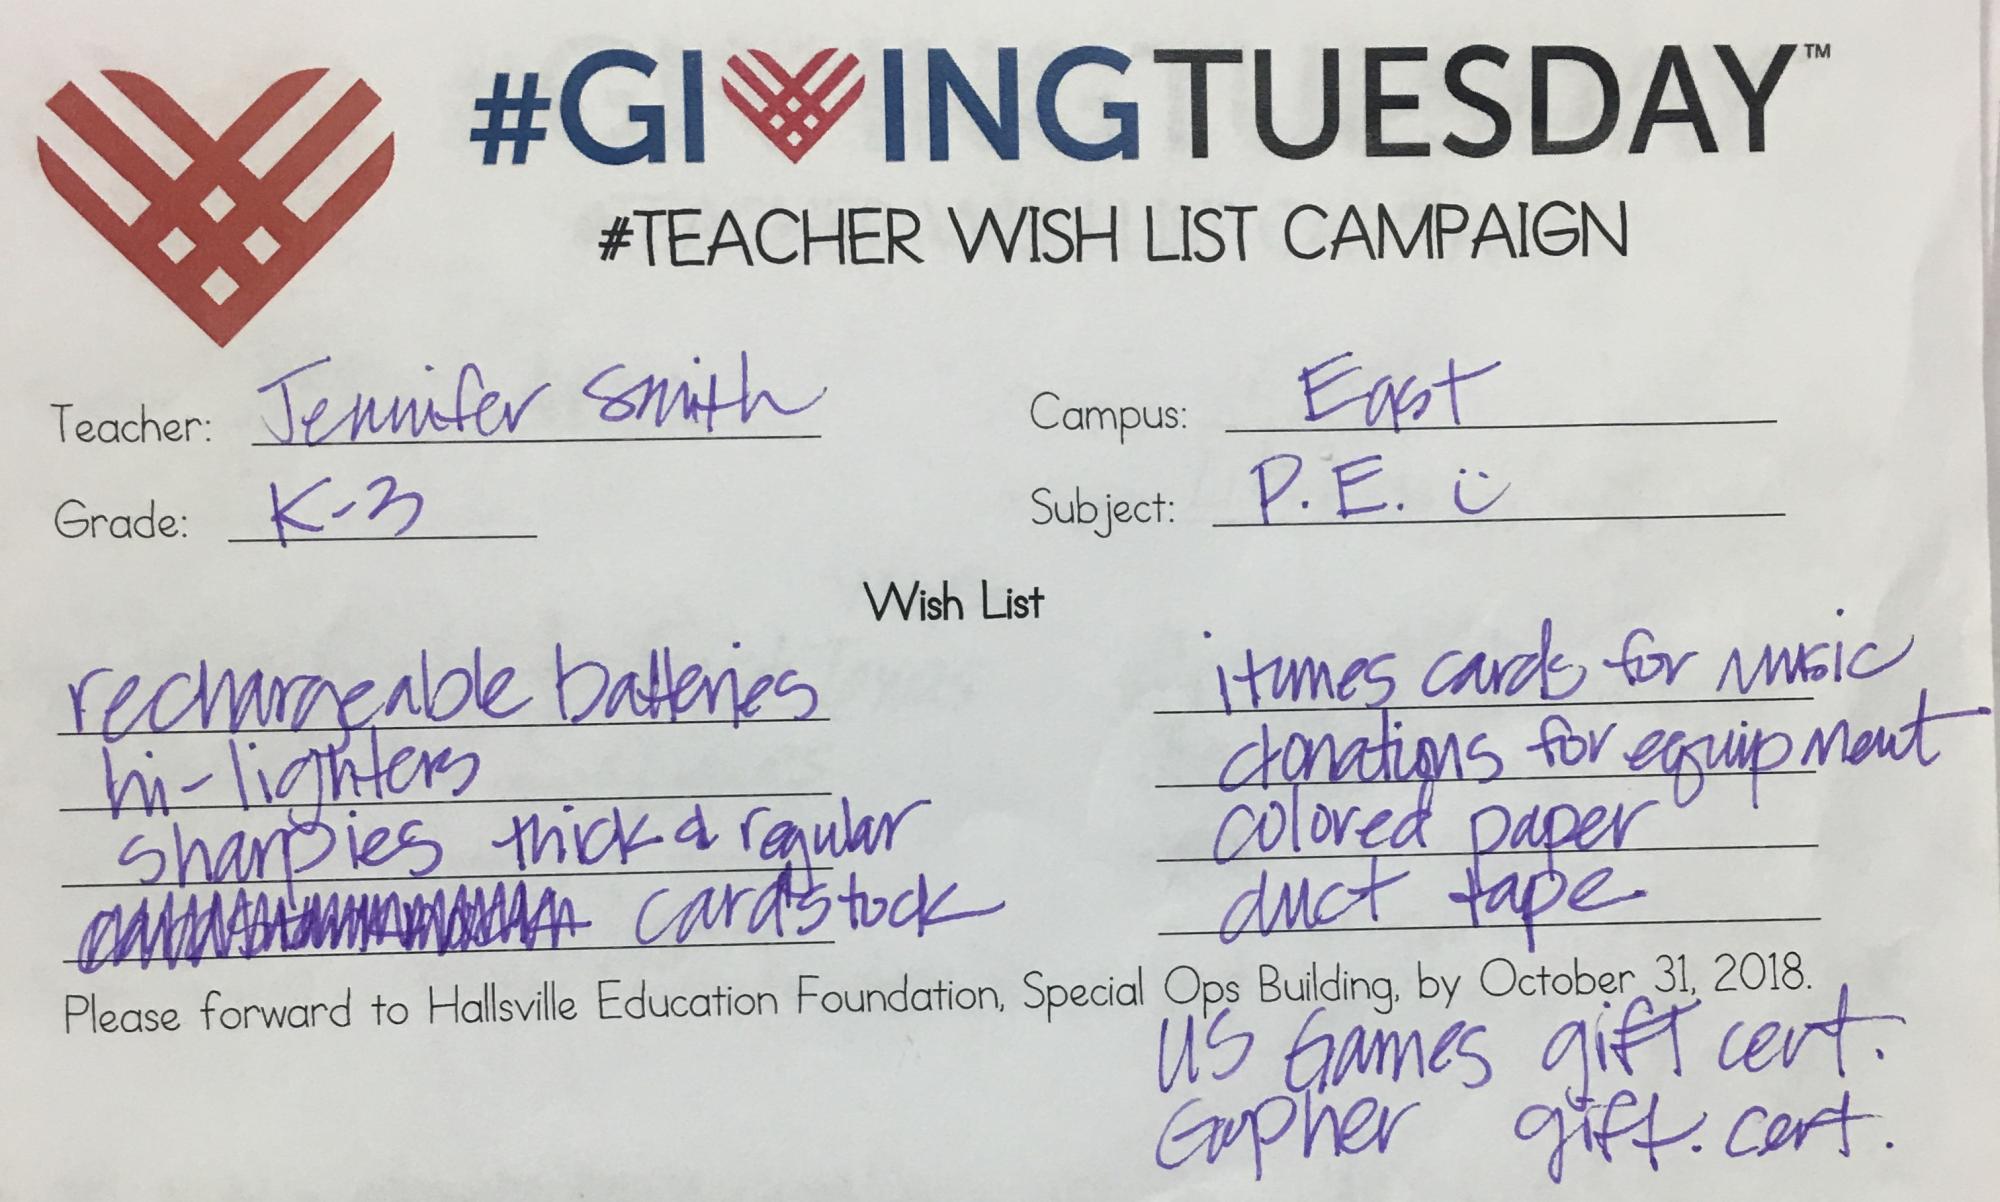 #GIVINGTUESDAY™
#TEACHER WISH LIST CAMPAIGN
Teacher: Jennifer Smith
Campus: East
Grade: K-3
Subject: P.E. :)
Wish List
rechargeable batteries
hi-lighters
sharpies thick & regular
cardstock
itunes cards for music
donations for equipment
colored paper
duct tape
Please forward to Hallsville Education Foundation, Special Ops Building, by October 31, 2018.
US Games gift cert.
Gopher gift. cert.